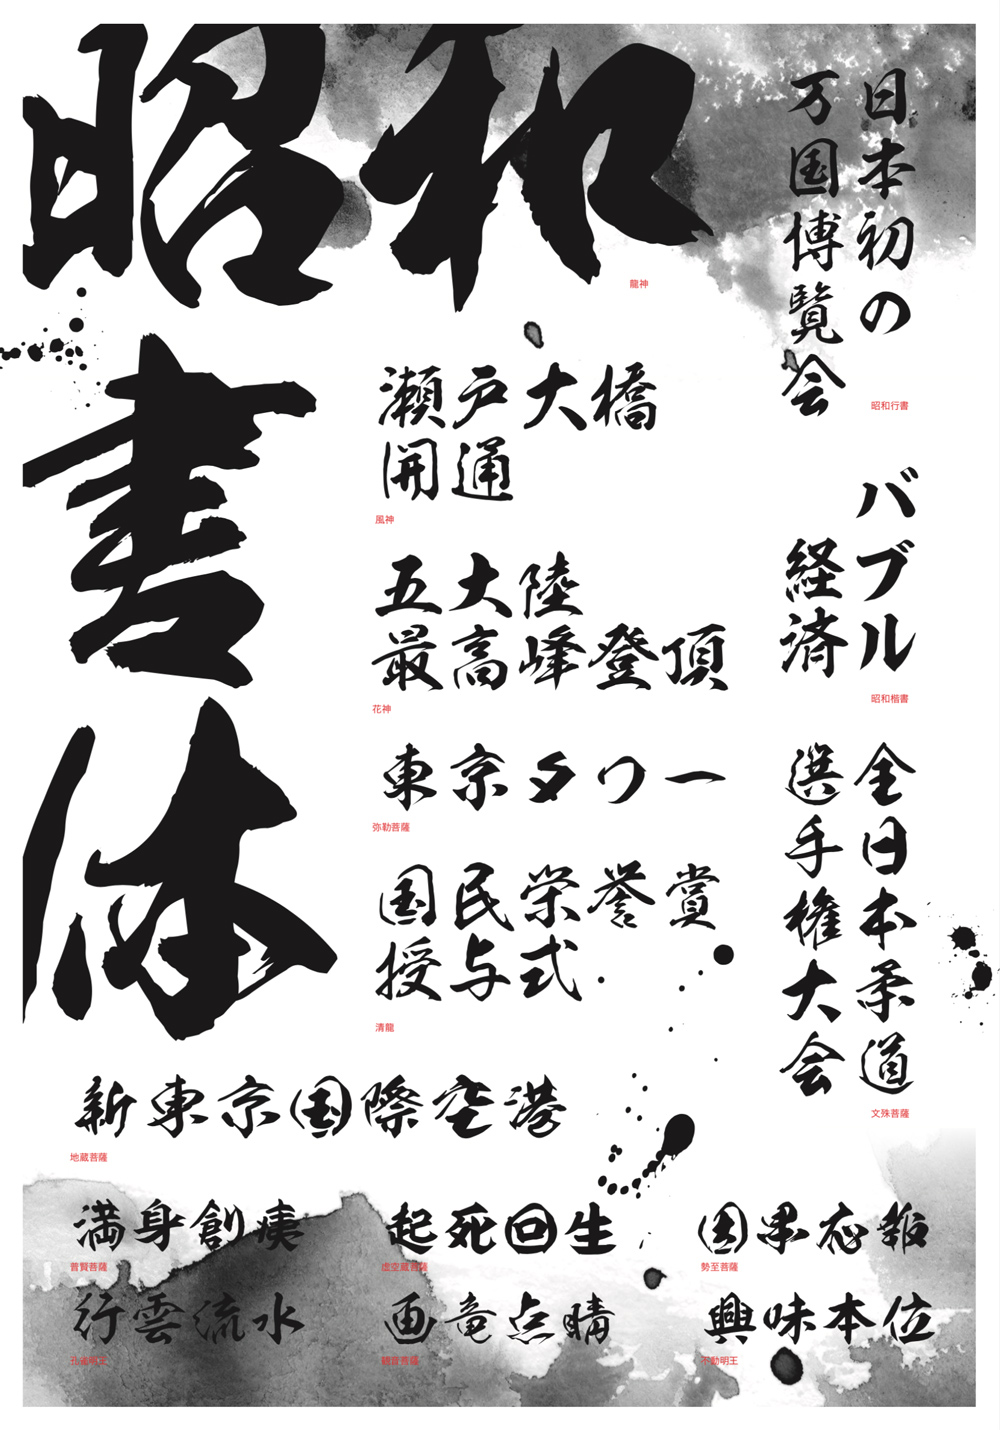 昭和
書
体
龍神
日本初の
万国博覧会
昭和行書
瀬戸大橋
開通
風神
バブル
経済
昭和楷書
五大陸
最高峰登頂
花神
東京タワー
弥勒菩薩
全日本柔道
選手権大会
文殊菩薩
国民栄誉賞
授与式
清龍
新東京国際空港
地蔵菩薩
満身創痍
普賢菩薩
起死回生
虚空蔵菩薩
因果応報
勢至菩薩
行雲流水
孔雀明王
画竜点睛
観音菩薩
興味本位
不動明王